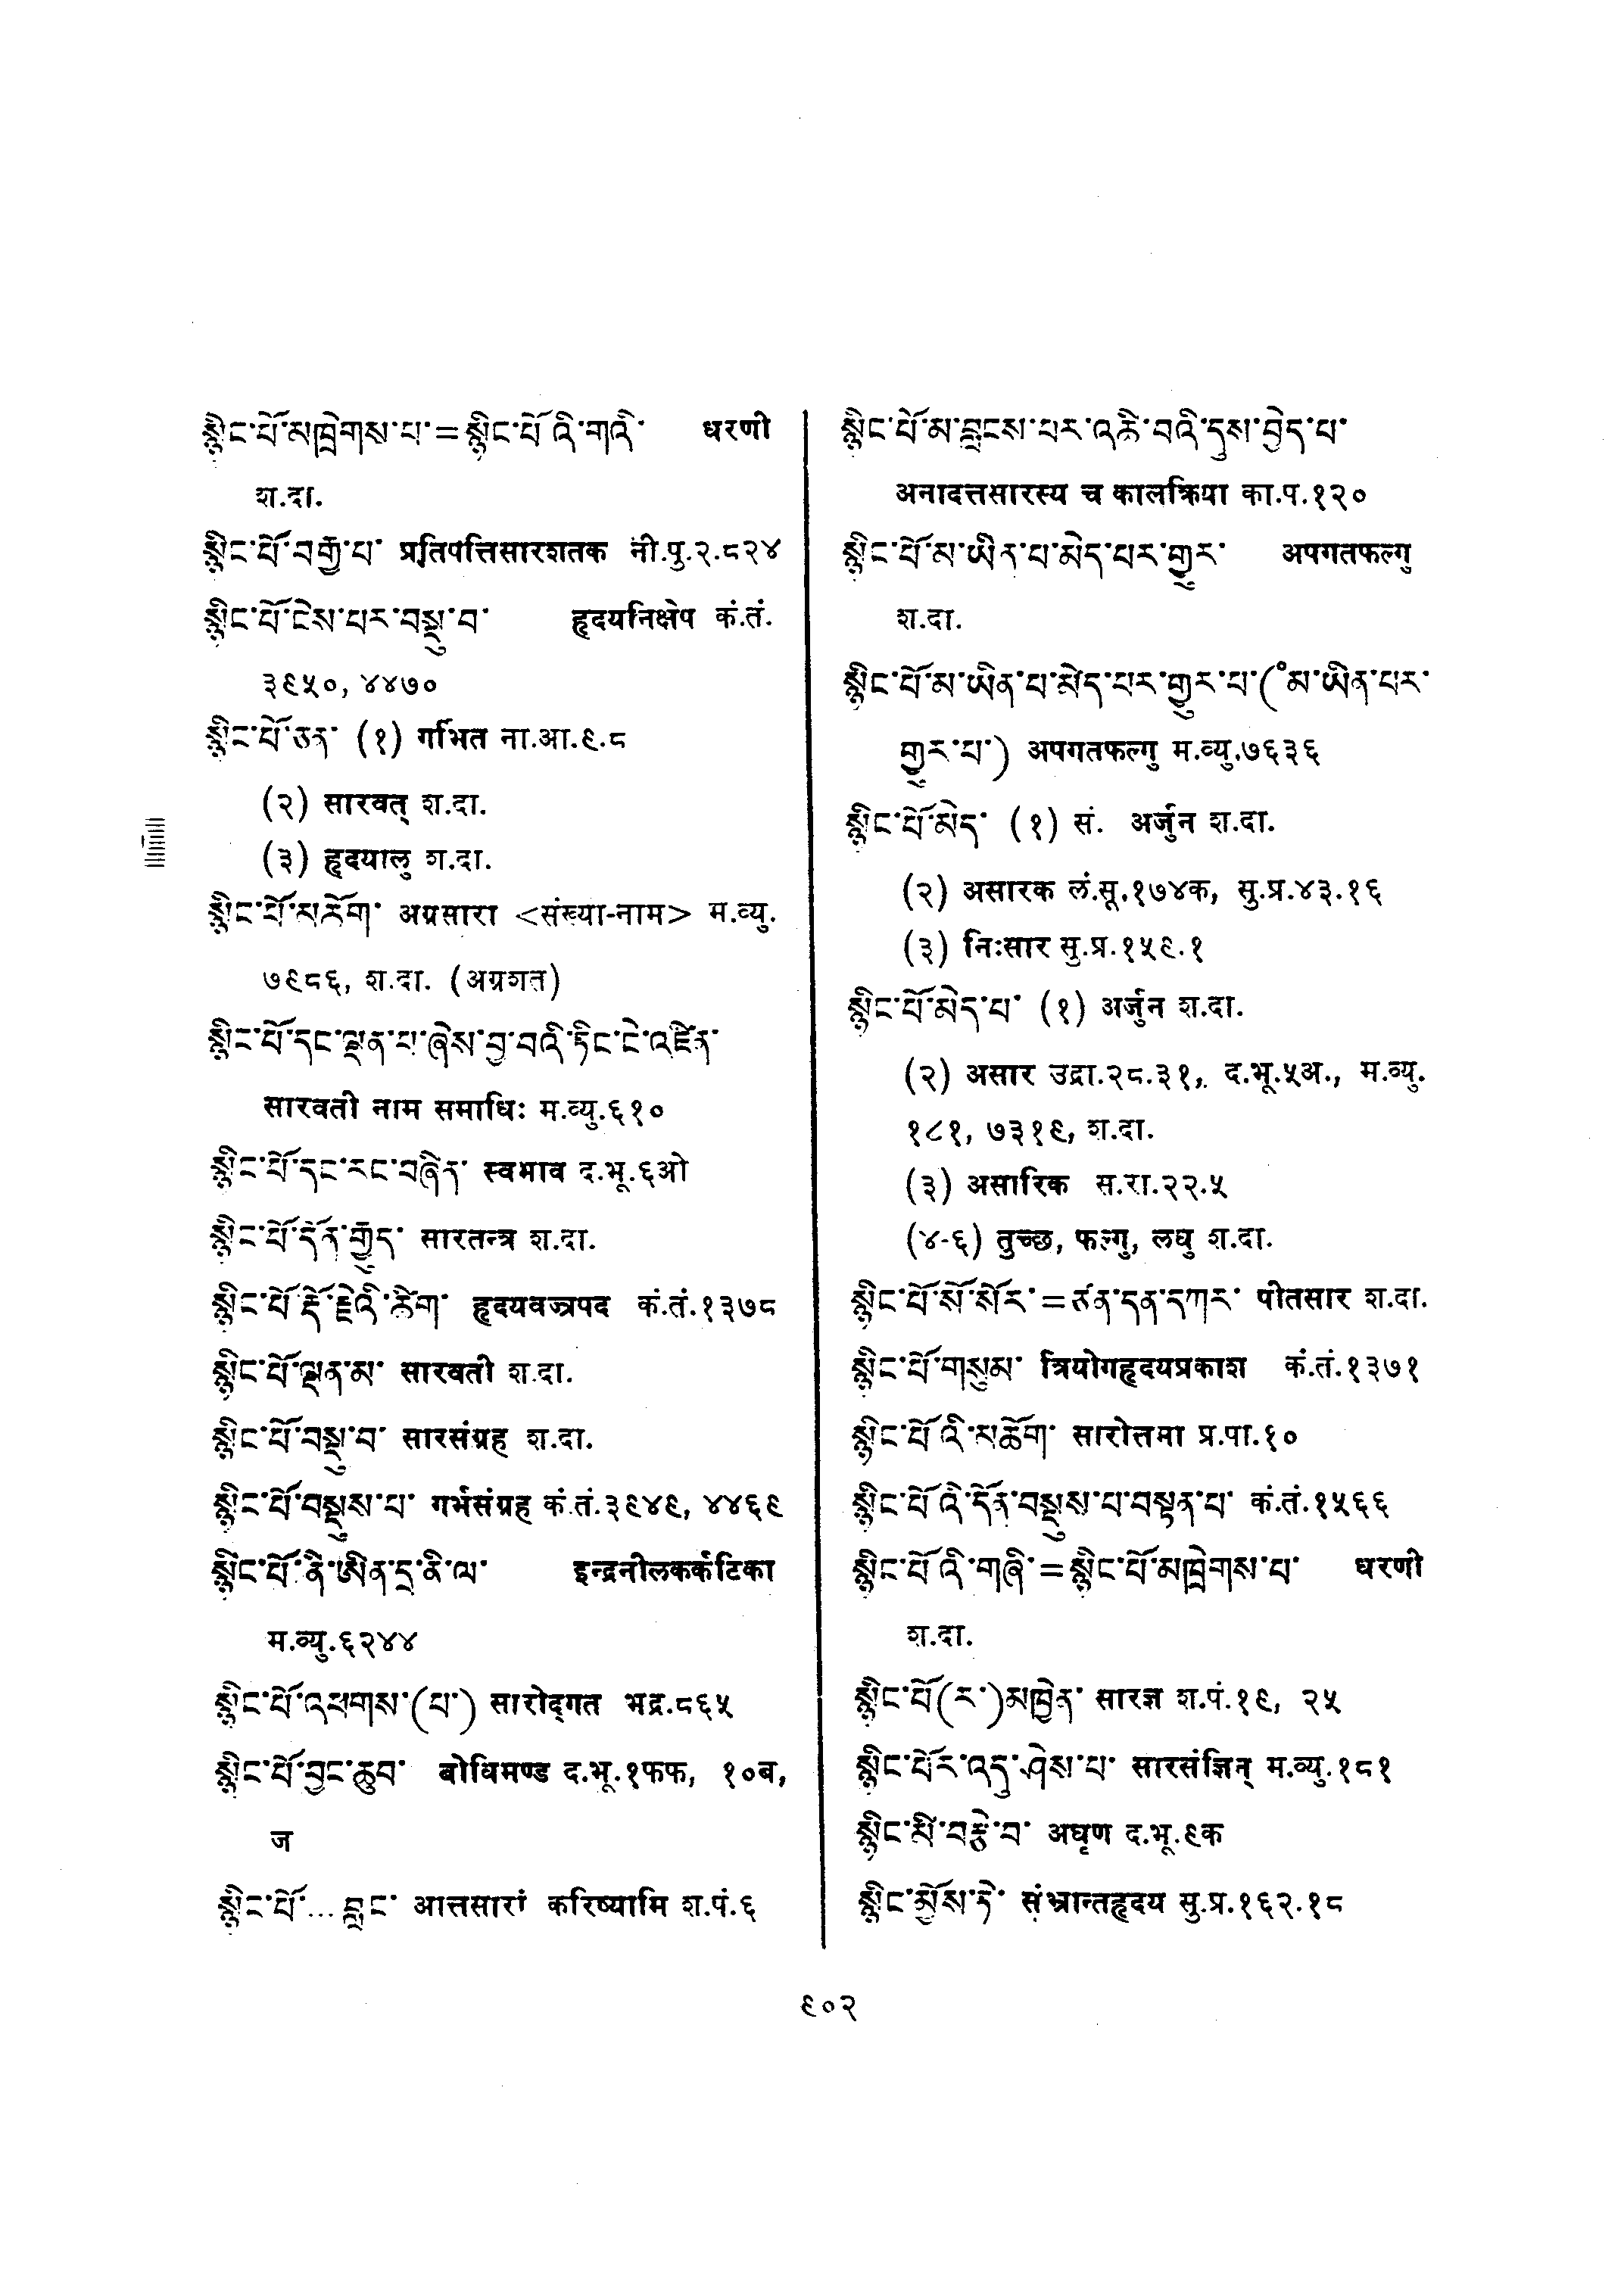 སྙིང་པོ་མཁྲེགས་པ་=སྙིང་པོ་འི་གཞི་ धरणी
श.दा.
སྙིང་པོ་བརྒྱ་པ་ प्रतिपत्तिसारशतक नी.पु.२.८२४
སྙིང་པོ་ངེས་པར་བསྡུ་བ་ हृदयनिक्षेप कं.तं.
३९५०, ४४७०
སྙིང་པོ་ཅན་ (१) गर्भित ना.आ.९.८
(२) सारवत् श.दा.
(३) हृदयालु श.दा.
སྙིང་པོ་མཆོག་ अग्रसारा <संख्या-नाम> म.व्यु.
७९८६, श.दा. (अग्रशत)
སྙིང་པོ་དང་ལྡན་པ་ཞེས་བྱ་བའི་ཏིང་ངེ་འཛིན་
सारवती नाम समाधिः म.व्यु.६१०
སྙིང་པོ་དང་རང་བཞིན་ स्वभाव द.भू.६ओ
སྙིང་པོ་དོན་རྒྱུད་ सारतन्त्र श.दा.
སྙིང་པོ་རྡོ་རྗེའི་ཚིག་ हृदयवज्रपद कं.तं.१३७८
སྙིང་པོ་ལྡན་མ་ सारवती श.दा.
སྙིང་པོ་བསྡུ་བ་ सारसंग्रह श.दा.
སྙིང་པོ་བསྡུས་པ་ गर्भसंग्रह कं.तं.३९४९, ४४६९
སྙིང་པོ་ནི་ཨིན་དྲ་ནི་ལ་ इन्द्रनीलकर्कटिका
म.व्यु.६२४४
སྙིང་པོ་འཕགས་(པ་) सारोद्गत भद्र.८६५
སྙིང་པོ་བྱང་ཆུབ་ बोधिमण्ड द.भू.१फफ, १०ब,
ज
སྙིང་པོ་... བླང་ आत्तसारां करिष्यामि श.पं.६
སྙིང་པོ་མ་བླངས་པར་འཆི་བའི་དུས་བྱེད་པ་
अनादत्तसारस्य च कालक्रिया का.प.१२०
སྙིང་པོ་མ་ཡིན་པ་མེད་པར་གྱུར་ अपगतफल्गु
श.दा.
སྙིང་པོ་མ་ཡིན་པ་མེད་པར་གྱུར་པ་(॰མ་ཡིན་པར་
གྱུར་པ་) अपगतफल्गु म.व्यु.७६३६
སྙིང་པོ་མེད་ (१) सं. अर्जुन श.दा.
(२) असारक लं.सू.१७४क, सु.प्र.४३.१६
(३) निःसार सु.प्र.१५९.१
སྙིང་པོ་མེད་པ་ (१) अर्जुन श.दा.
(२) असार उद्रा.२८.३१, द.भू.५अ., म.व्यु.
१८१, ७३१९, श.दा.
(३) असारिक स.रा.२२.५
(४-६) तुच्छ, फल्गु, लघु श.दा.
སྙིང་པོ་སོ་སོར་=ཙན་དན་དཀར་ पीतसार श.दा.
སྙིང་པོ་གསུམ་ त्रियोगहृदयप्रकाश कं.तं.१३७१
སྙིང་པོ་འི་མཆོག་ सारोत्तमा प्र.पा.१०
སྙིང་པོ་འི་དོན་བསྡུས་པ་བསྟན་པ་ कं.तं.१५६६
སྙིང་པོ་འི་གཞི་=སྙིང་པོ་མཁྲེགས་པ་ धरणी
श.दा.
སྙིང་པོ(ར་)མཁྱེན་ सारज्ञ श.पं.१९, २५
སྙིང་པོར་འདུ་ཤེས་པ་ सारसंज्ञिन् म.व्यु.१८१
སྙིང་མི་བརྩེ་བ་ अघृण द.भू.९क
སྙིང་མྱོས་ཏེ་ संभ्रान्तहृदय सु.प्र.१६२.१८
९०२